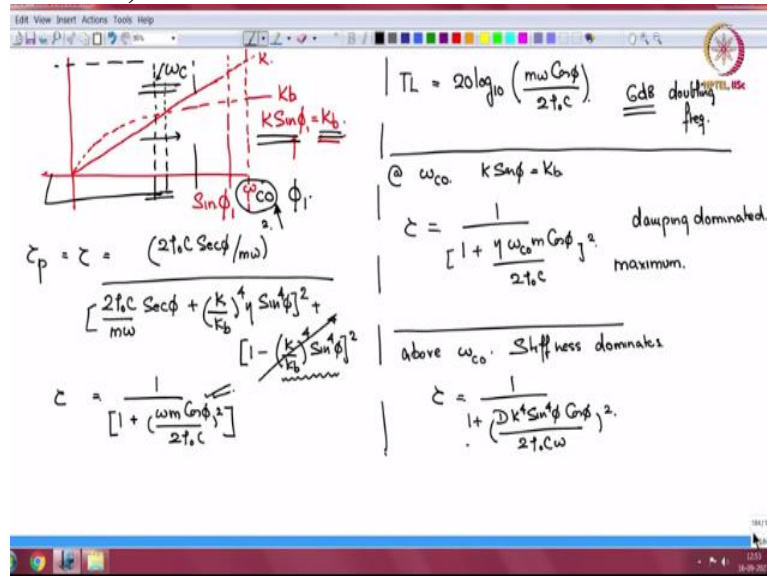 Edit View Insert Actions Tools Help
ωc
K
Kb
K Sinφ₁ = Kb.
Sinφ₁
ωco φ₁.
τp = τ = (2ρ₀C Secφ/mω)²
[2ρ₀C/mω Secφ + (K/Kb)⁴ η Sin⁴φ]² +
[1 - (K/Kb)⁴ Sin⁴φ]²
τ = 1/[1 + (ωm Cosφ/2ρ₀C)²]
TL = 20log₁₀ (mω Cosφ/2ρ₀C).
6dB doubling
freq.
@ ωco. K Sinφ = Kb
τ = 1/[1 + ηωco m Cosφ/2ρ₀C]².
damping dominated.
maximum.
above ωco. Stiffness dominates
τ = 1/1+ (DK⁴Sin⁴φ Cosφ/2ρ₀Cω)².
NPTEL, IISc
184/1
12:53
16-09-202